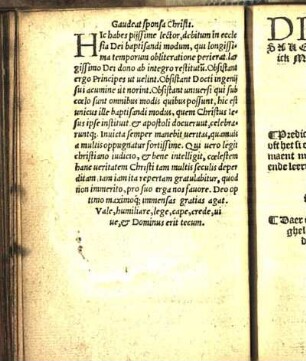 Gaudeat sponsa Christi.
HIc habes pijssime lector, debitum in eccle
sia Dei baptisandi modum, qui longissi
ma temporum obliteratione perierat lar
gissimo Dei dono ab integro restitutũ. Obsistant
ergo Principes ut uelint. Obsistant Docti ingenij
sui acumine ut norint. Obsistant uniuersi qui sub
cœlo sunt omnibus modis quibus possunt, hic est
unicus ille baptisandi modus, quem Christus Ie-
sus ipse instituit & apostoli docuerunt, celebra-
runtq;. Inuicta semper manebit ueritas, quamuis
a multis oppugnatur fortissime. Qui uero legit
christiano iudicio, & bene intelligit, cœlestem
hanc ueritatem Christi tam multis seculis deper
ditam. tam iam ita repertam gratulabitur, quod
non immerito, pro suo erga nos fauore. Deo op
timo maximoq; immensas gratias agat.
Vale, humiliare, lege, cape, crede, ui
ue, & Dominus erit tecum.
DI
¶Predic
oft het si c
maent m
ende leere
¶Daer
ghel